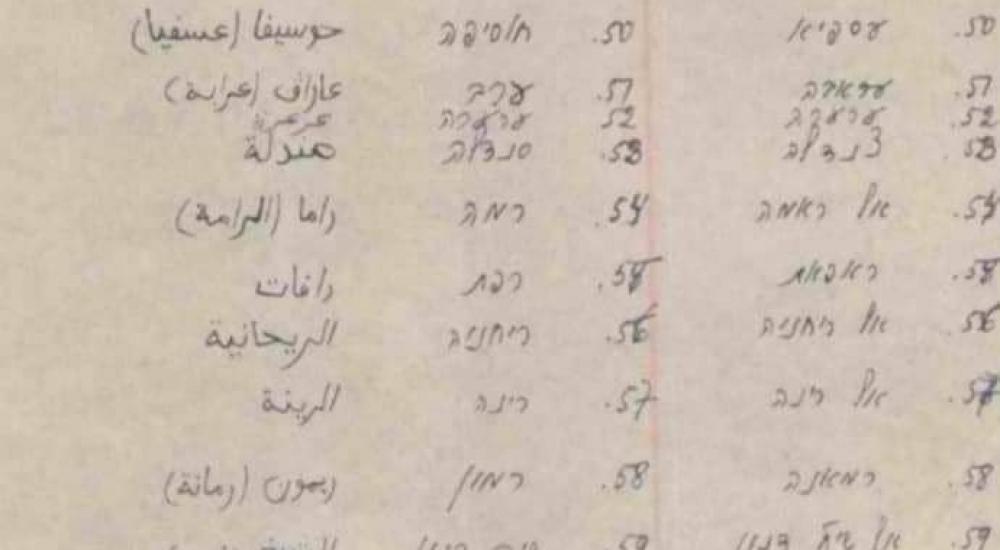 50. עספיא 50. חוסיפה حوسيفا (عسفيا)
51. 51. ערב (عرابة)
52. ערערה 52. ערערה عرعرة
53. צנדלה 53. סנדלה صندلة
54. אל ראמה 54. רמה راما (الرامة)
ראפאת רפת رافات
56. אל ריחניה 56. ריחניה الريحانية
57. אל רינה 57. רינה الرينة
58. רמאנה 58. רמון ريمون (رمانة)
59. 59.